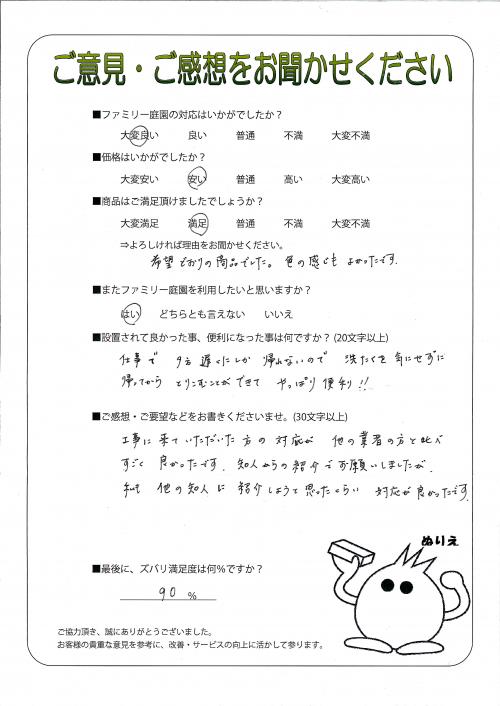 ご意見・ご感想をお聞かせください
■ファミリー庭園の対応はいかがでしたか？
大変良い 良い 普通 不満 大変不満
■価格はいかがでしたか？
大変安い 安い 普通 高い 大変高い
■商品はご満足頂けましたでしょうか？
大変満足 満足 普通 不満 大変不満
⇒よろしければ理由をお聞かせください。
希望どおりの商品でした。色の感じもよかったです.
■またファミリー庭園を利用したいと思いますか？
はい どちらとも言えない いいえ
■設置されて良かった事、便利になった事は何ですか？(20文字以上)
仕事で 夕方 遅くにしか 帰れないので 洗たくを気にせずに
帰ってから とりこむことができて やっぱり便利!!
■ご感想・ご要望などをお書きくださいませ。(30文字以上)
工事に来ていただいた方の対応が 他の業者の方と比べ
すごく良かったです. 知人からの紹介でお願いしましたが.
私も 他の知人に紹介しようと思ったくらい 対応が良かったです.
ぬりえ
■最後に、ズバリ満足度は何%ですか？
90 %
ご協力頂き、誠にありがとうございました。
お客様の貴重な意見を参考に、改善・サービスの向上に活かして参ります。